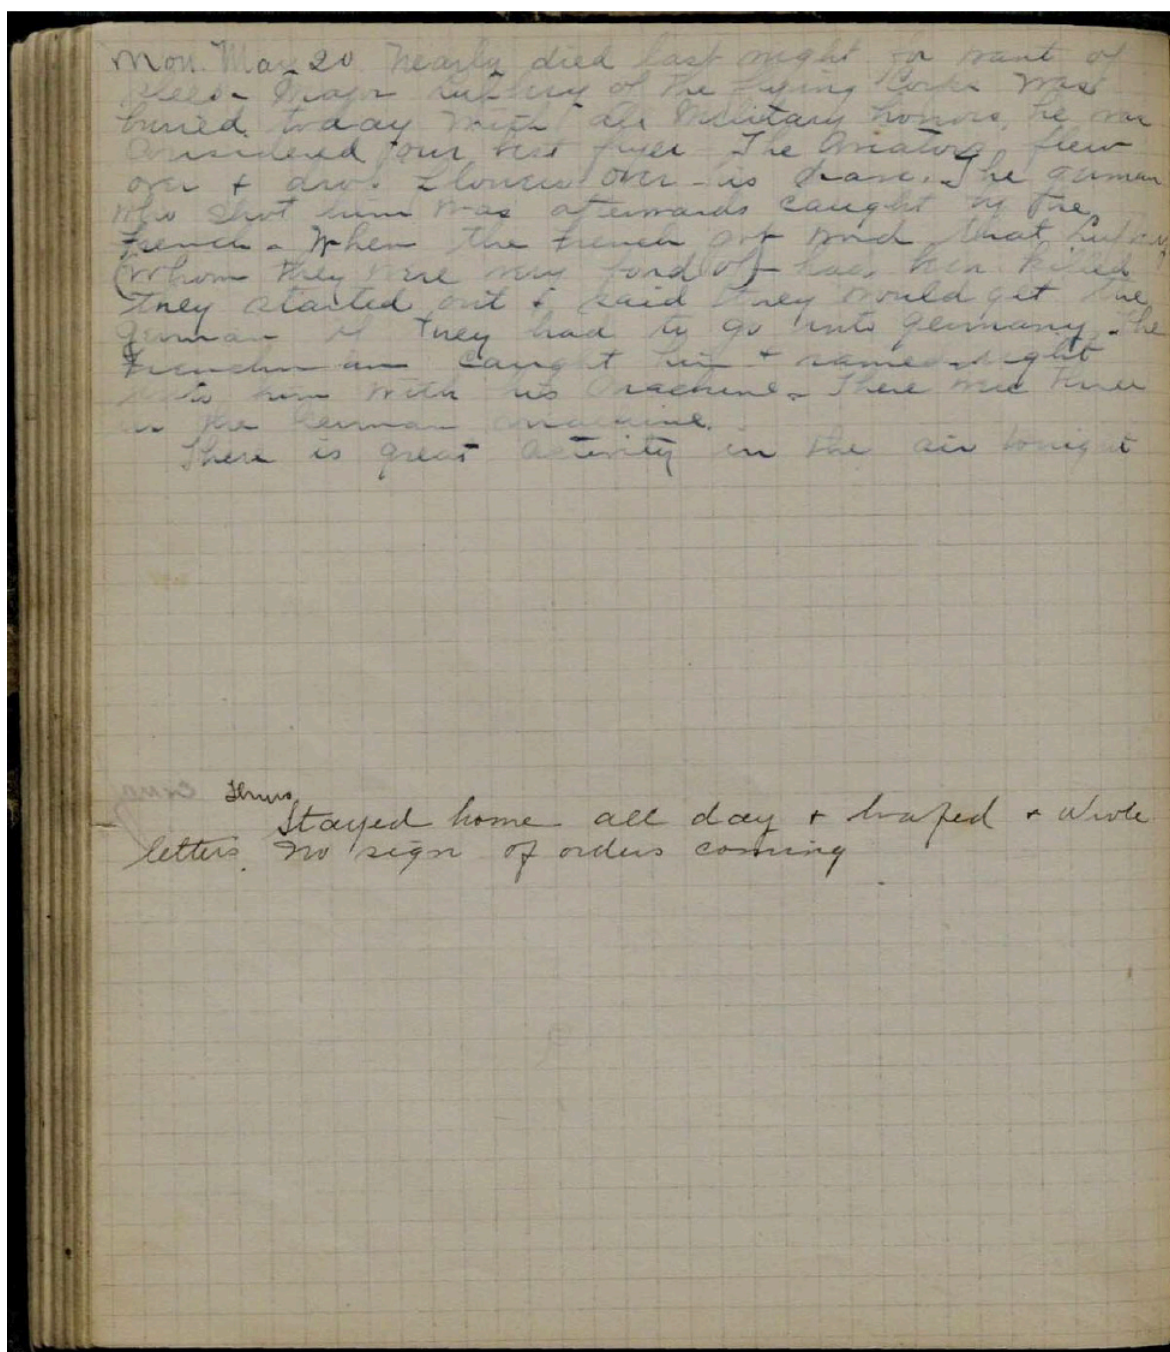 Mon. Mar 20 Nearly died last night for want of
sleep. Major of the Flying Corps was
buried today with all Military honors, he was
considered our best flyer. The Aviators flew
over & drop flowers over is grave. The german
who shot him was afterwards caught by the
French. When the French got word that
(whom they were very fond of) had been killed
they started out & said they would get the
german if they had to go into Germany. The
Frenchman caught him & ramed right
into him with his machine. There were three
in the German machine.
There is great activity in the air tonight
Thurs
Stayed home all day & loafed & wrote
letters. No sign of orders coming